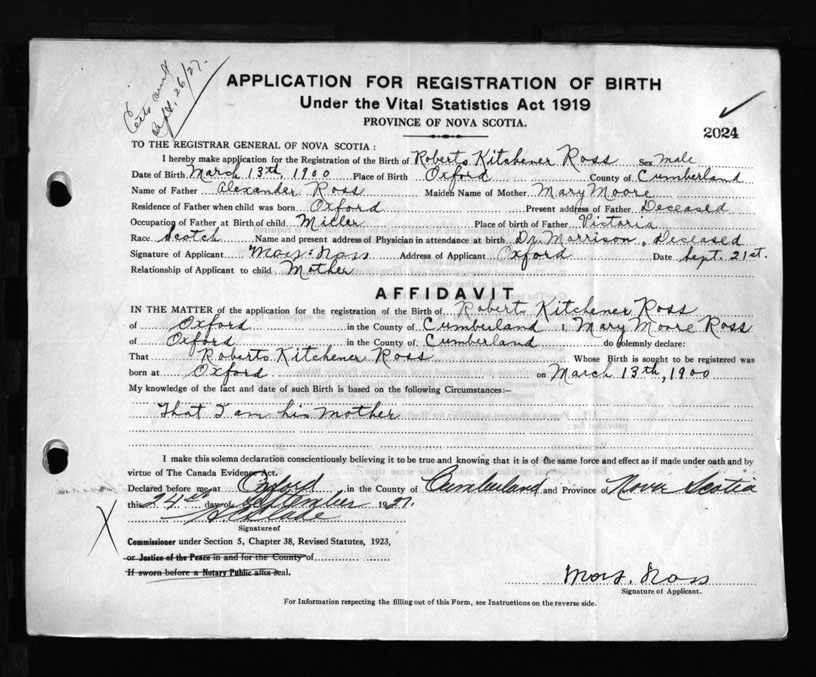 Certs
Sept. 26/27.
APPLICATION FOR REGISTRATION OF BIRTH
Under the Vital Statistics Act 1919
PROVINCE OF NOVA SCOTIA.
2024
TO THE REGISTRAR GENERAL OF NOVA SCOTIA :
I hereby make application for the Registration of the Birth of Roberts Kitchener Ross Sex male
Date of Birth March 13th, 1900 Place of Birth Oxford County of Cumberland
Name of Father Alexander Ross Maiden Name of Mother Mary Moore
Residence of Father when child was born Oxford Present address of Father Deceased
Occupation of Father at Birth of child Miller Place of birth of Father Victoria
Race Scotch Name and present address of Physician in attendance at birth Dr. Morrison, Deceased
Signature of Applicant Mary Ross Address of Applicant Oxford Date Sept. 21st.
Relationship of Applicant to child Mother
AFFIDAVIT
IN THE MATTER of the application for the registration of the Birth of Roberts Kitchener Ross
of Oxford in the County of Cumberland I, Mary Moore Ross
of Oxford in the County of Cumberland do solemnly declare:
That Roberts Kitchener Ross Whose Birth is sought to be registered was
born at Oxford on March 13th, 1900
My knowledge of the fact and date of such Birth is based on the following Circumstances:—
That I am his Mother
I make this solemn declaration conscientiously believing it to be true and knowing that it is of the same force and effect as if made under oath and by
virtue of The Canada Evidence Act.
Declared before me at Oxford in the County of Cumberland and Province of Nova Scotia
this 24th day of September 1927.
Signature of
Commissioner under Section 5, Chapter 38, Revised Statutes, 1923,
or Justice of the Peace in and for the County of
If sworn before a Notary Public affix seal.
Mary Ross
Signature of Applicant.
For Information respecting the filling out of this Form, see Instructions on the reverse side.